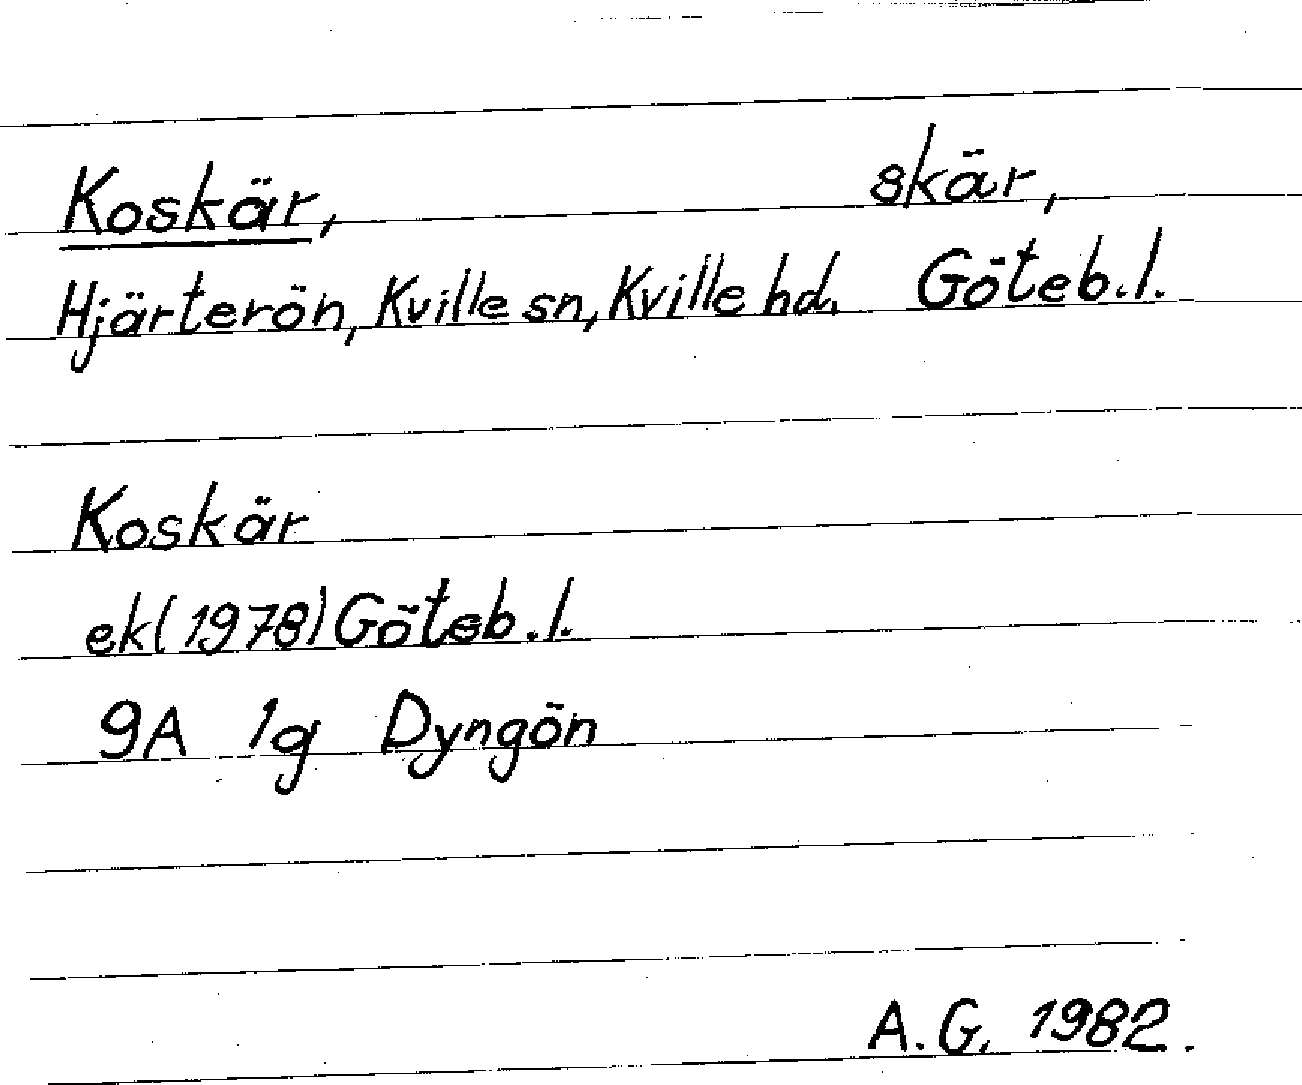 Koskär, skär,
Hjärterön, Kville sn, Kville hd, Göteb.l.
Koskär
ek(1978) Göteb.l.
9A 1g Dyngön
A.G. 1982.